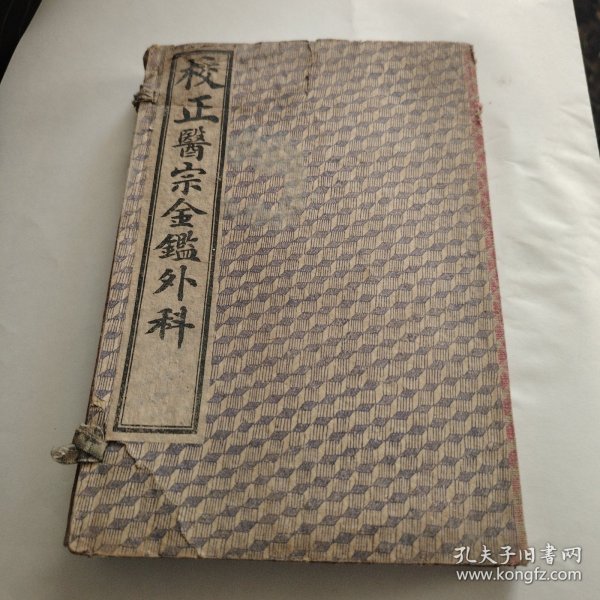 校正醫宗金鑑外科
孔夫子旧書网
www.kongfz.com